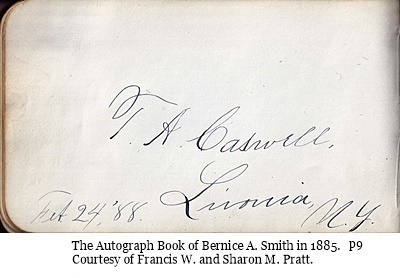 T. A. Caswell.
Livonia, N.Y.
Feb 24, '88.
The Autograph Book of Bernice A. Smith in 1885. P9
Courtesy of Francis W. and Sharon M. Pratt.